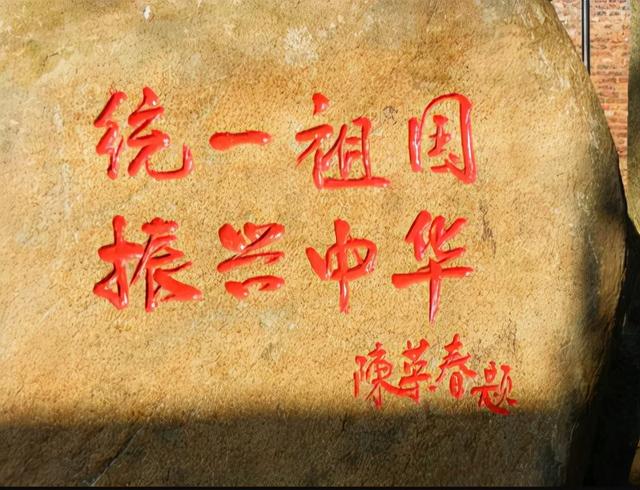 统一祖国
振兴中华
陳英春题